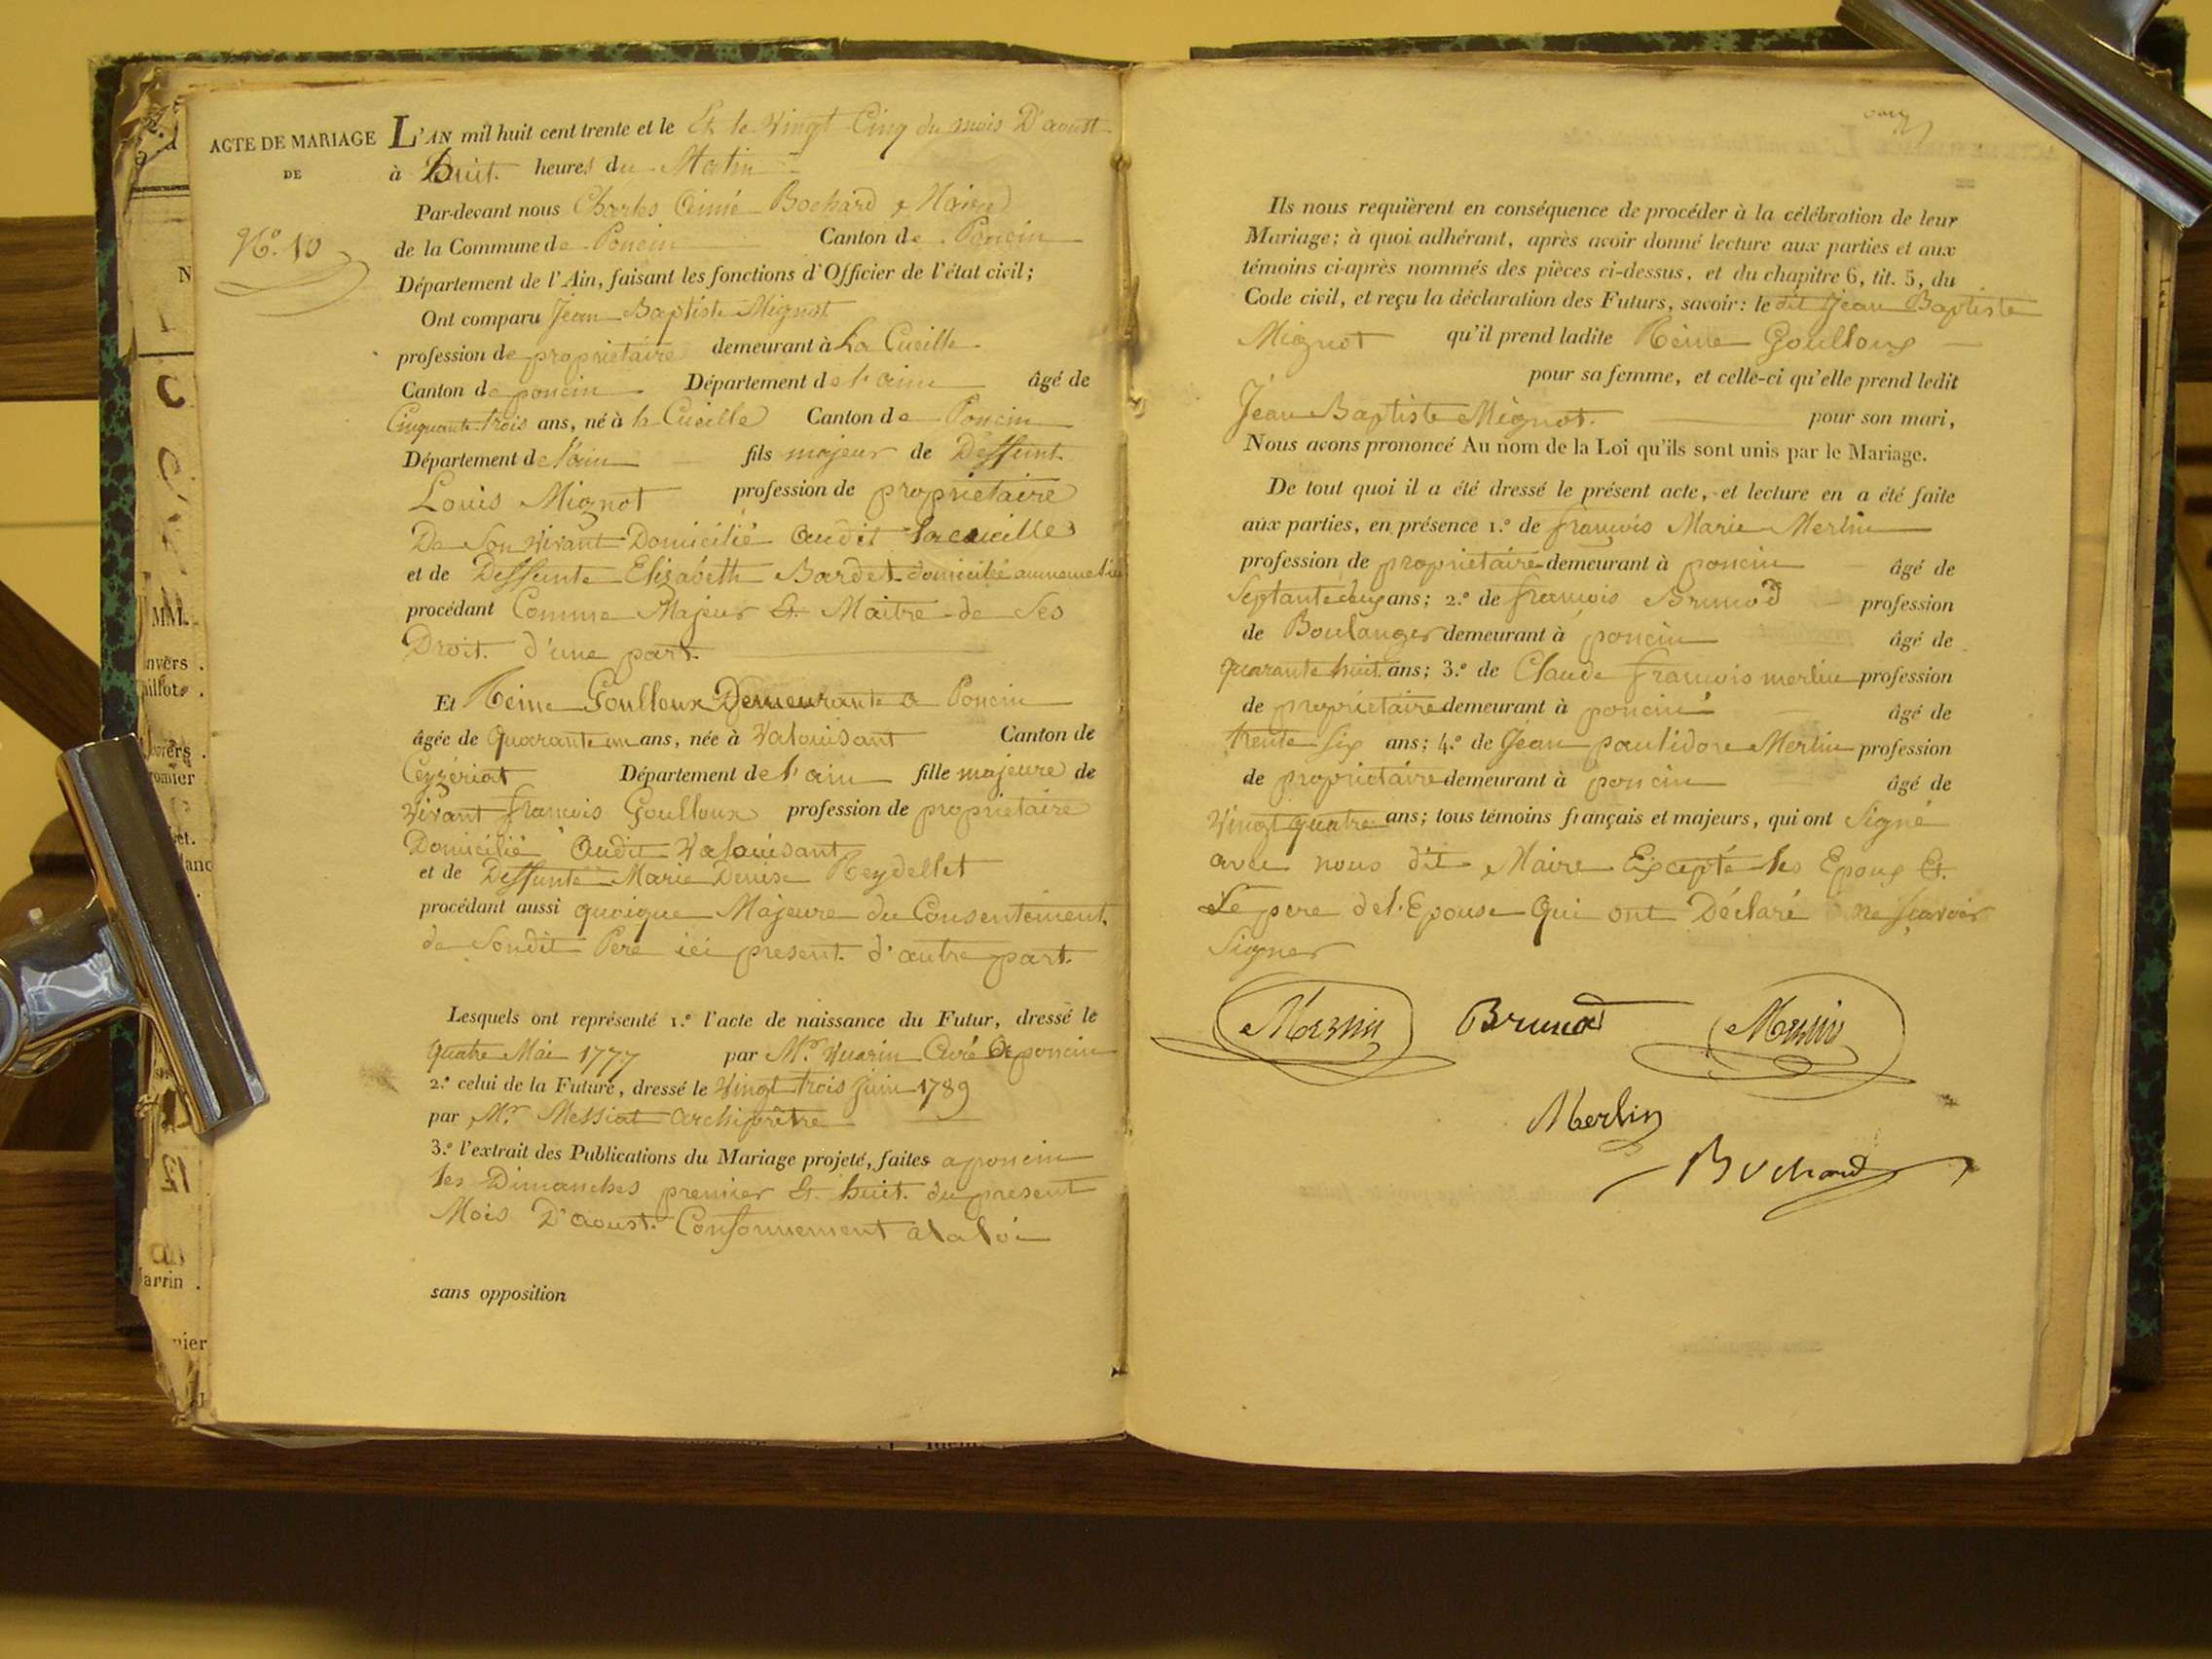 ACTE DE MARIAGE
DE
N.º 10
L'AN mil huit cent trente et le Et le Vingt Cinq du mois D'aoust
à Huit heures du Matin
Par-devant nous Charles Aimé Bochard Maire
de la Commune de Poncin Canton de Poncin
Département de l'Ain, faisant les fonctions d'Officier de l'état civil;
Ont comparu Jean Baptiste Mignot
profession de propriétaire demeurant à La Cueille
Canton de poncin Département de l'ain âgé de
Cinquante trois ans, né à la Cueille Canton de Poncin
Département de l'ain fils majeur de Deffunt
Louis Mignot profession de propriétaire
De Son Vivant Domicilié Audit la cueille
et de Deffunte Elizabeth Bardet domiciliée au meme lieu
procédant Comme Majeur Et Maitre de Ses
Droit d'une part.
Et Reine Goulloux Demeurante a Poncin
âgée de Quarante un ans, née à Valouisant Canton de
Ceyzériat Département de l'ain fille majeure de
Vivant françois Goulloux profession de propriétaire
Domicilié Audit Valouisant
et de Deffunte Marie Denise Reydellet
procédant aussi quoique Majeure du Consentement
de Sondit Pere ici present. d'autre part.
Lesquels ont représenté 1.º l'acte de naissance du Futur, dressé le
Quatre Mai 1777 par Mr. Vuarin Curé De poncin
2.º celui de la Future, dressé le Vingt trois juin 1789
par Mr. Messiat archiprêtre
3.º l'extrait des Publications du Mariage projeté, faites a poncin
les Dimanches premier Et huit du present
Mois D'aoust. Conformement a la loi
sans opposition
Ils nous requièrent en conséquence de procéder à la célébration de leur
Mariage; à quoi adhérant, après avoir donné lecture aux parties et aux
témoins ci-après nommés des pièces ci-dessus, et du chapitre 6, tit. 5, du
Code civil, et reçu la déclaration des Futurs, savoir: le dit Jean Baptiste
Mignot qu'il prend ladite Reine Goulloux
pour sa femme, et celle-ci qu'elle prend ledit
Jean Baptiste Mignot. pour son mari,
Nous avons prononcé Au nom de la Loi qu'ils sont unis par le Mariage.
De tout quoi il a été dressé le présent acte, et lecture en a été faite
aux parties, en présence 1.º de françois Marie Merlin
profession de propriétaire demeurant à poncin âgé de
Septante deux ans; 2.º de françois Brunod profession
de Boulanger demeurant à poncin âgé de
quarante huit ans; 3.º de Claude françois merlin profession
de propriétaire demeurant à poncin âgé de
trente six ans; 4.º de Jean paulidore Merlin profession
de propriétaire demeurant à poncin âgé de
Vingt quatre ans; tous témoins français et majeurs, qui ont Signé
avec nous dit Maire Excepté les Epoux Et
Le pere de l'Epouse Qui ont Déclaré ne Scavoir
Signer
Merlin Brunod Merlin
Merlin
Bochard